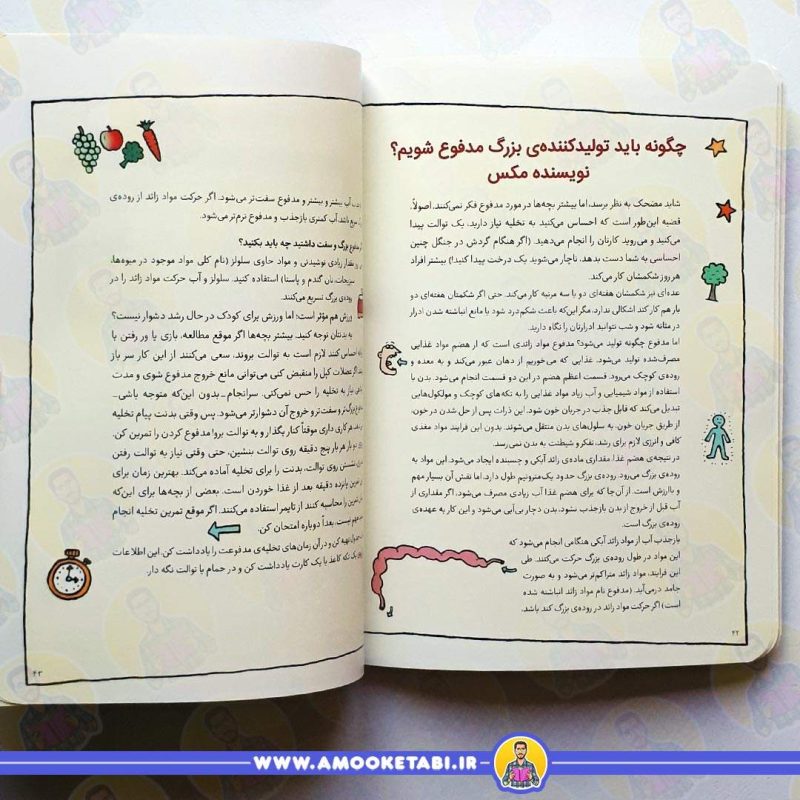 چگونه باید تولیدکننده‌ی بزرگ مدفوع شویم؟
نویسنده مکس
شاید مضحک به نظر برسد، اما بیشتر بچه‌ها در مورد مدفوع فکر نمی‌کنند. اصولاً،
قضیه این‌طور است که احساس می‌کنید به تخلیه نیاز دارید، یک توالت پیدا
می‌کنید و می‌روید کارتان را انجام می‌دهید. (اگر هنگام گردش در جنگل چنین
احساسی به شما دست بدهد، ناچار می‌شوید یک درخت پیدا کنید!) بیشتر افراد
هر روز شکمشان کار می‌کند.
عده‌ای نیز شکمشان هفته‌ای دو یا سه مرتبه کار می‌کند. حتی اگر شکمتان هفته‌ای دو
بار هم کار کند اشکالی ندارد، مگر این‌که باعث شکم‌درد شود یا مانع انباشته شدن ادرار
در مثانه شود و شب نتوانید ادرارتان را نگاه دارید.
اما مدفوع چگونه تولید می‌شود؟ مدفوع مواد زائدی است که از هضم مواد غذایی
مصرف‌شده تولید می‌شود. غذایی که می‌خوریم از دهان عبور می‌کند و به معده و
روده‌ی کوچک می‌رود. قسمت اعظم هضم در این دو قسمت انجام می‌شود. بدن با
استفاده از مواد شیمیایی و آب زیاد مواد غذایی را به تکه‌های کوچک و مولکول‌هایی
تبدیل می‌کند که قابل جذب در جریان خون شود. این ذرات پس از حل شدن در خون،
از طریق جریان خون به سلول‌های بدن منتقل می‌شوند. بدون این فرایند مواد مغذی
کافی و انرژی لازم برای رشد، تفکر و شیطنت به بدن نمی‌رسد.
در نتیجه‌ی هضم غذا مقداری ماده‌ی زائد آبکی و چسبنده ایجاد می‌شود. این مواد به
روده‌ی بزرگ می‌رود. روده‌ی بزرگ حدود یک‌مترونیم طول دارد. اما نقش آن بسیار مهم
و باارزش است. از آن‌جا که برای هضم غذا آب زیادی مصرف می‌شود، اگر مقداری از
آب قبل از خروج از بدن بازجذب نشود، بدن دچار بی‌آبی می‌شود و این کار به عهده‌ی
روده‌ی بزرگ است.
بازجذب آب از مواد زائد آبکی هنگامی انجام می‌شود که
این مواد در طول روده‌ی بزرگ حرکت می‌کنند. طی
این فرایند، مواد زائد متراکم‌تر می‌شود و به صورت
جامد درمی‌آید. (مدفوع نام مواد زائد انباشته شده
است) اگر حرکت مواد زائد در روده‌ی بزرگ کند باشد،
۴۲
آب بیشتر و بیشتر و مدفوع سفت‌تر می‌شود. اگر حرکت مواد زائد از روده‌ی
سریع باشد، آب کمتری بازجذب و مدفوع نرم‌تر می‌شود.
مدفوع بزرگ و سفت داشتید چه باید بکنید؟
مقدار زیادی نوشیدنی و مواد حاوی سلولز (نام کلی مواد موجود در میوه‌ها،
سبزیجات، نان گندم و پاستا) استفاده کنید. سلولز و آب حرکت مواد زائد را در
روده‌ی بزرگ تسریع می‌کنند.
ورزش هم مؤثر است؛ اما ورزش برای کودک در حال رشد دشوار نیست؟
به بدنتان توجه کنید. بیشتر بچه‌ها اگر موقع مطالعه، بازی یا ور رفتن با
احساس کنند لازم است به توالت بروند، سعی می‌کنند از این کار سر باز
اگر عضلات کپل را منقبض کنی می‌توانی مانع خروج مدفوع شوی و مدت
نیاز به تخلیه را حس نمی‌کنی. سرانجام ـ بدون این‌که متوجه باشی ـ
بزرگ‌تر و سفت‌تر و خروج آن دشوارتر می‌شود. پس وقتی بدنت پیام تخلیه
هر کاری داری موقتاً کنار بگذار و به توالت برو! مدفوع کردن را تمرین کن.
دو بار هر بار پنج دقیقه روی توالت بنشین، حتی وقتی نیاز به توالت رفتن
نشستن روی توالت، بدنت را برای تخلیه آماده می‌کند. بهترین زمان برای
تمرین پانزده دقیقه بعد از غذا خوردن است. بعضی از بچه‌ها برای این‌که
تمرین را محاسبه کنند از تایمر استفاده می‌کنند. اگر موقع تمرین تخلیه انجام
مهم نیست، بعداً دوباره امتحان کن.
تهیه کن و در آن زمان‌های تخلیه‌ی مدفوعت را یادداشت کن. این اطلاعات
یک تکه کاغذ یا یک کارت یادداشت کن و در حمام یا توالت نگه دار.
۴۳
WWW.AMOOKETABI.IR